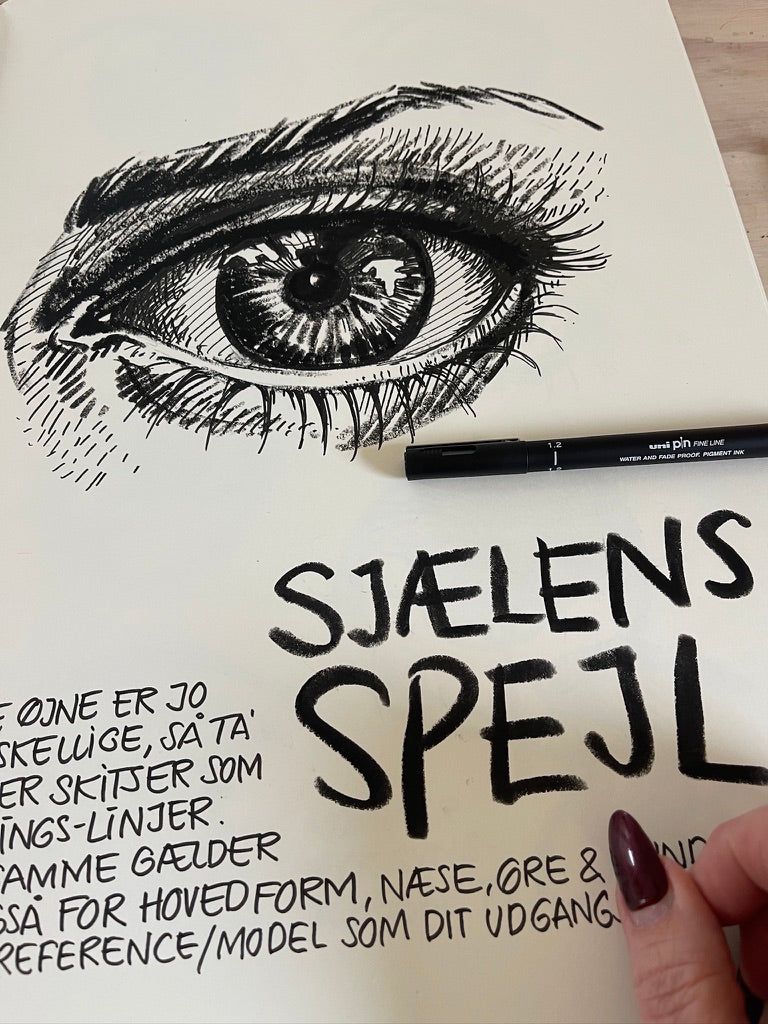 1.2
uni pin FINE LINE
WATER AND FADE PROOF. PIGMENT INK
SJÆLENS
SPEJL
ØJNE ER JO
SKELLIGE, SÅ TA'
ER SKITSER SOM
INGS-LINJER.
SAMME GÆLDER
GSÅ FOR HOVEDFORM, NÆSE, ØRE &
REFERENCE/MODEL SOM DIT UDGANGS